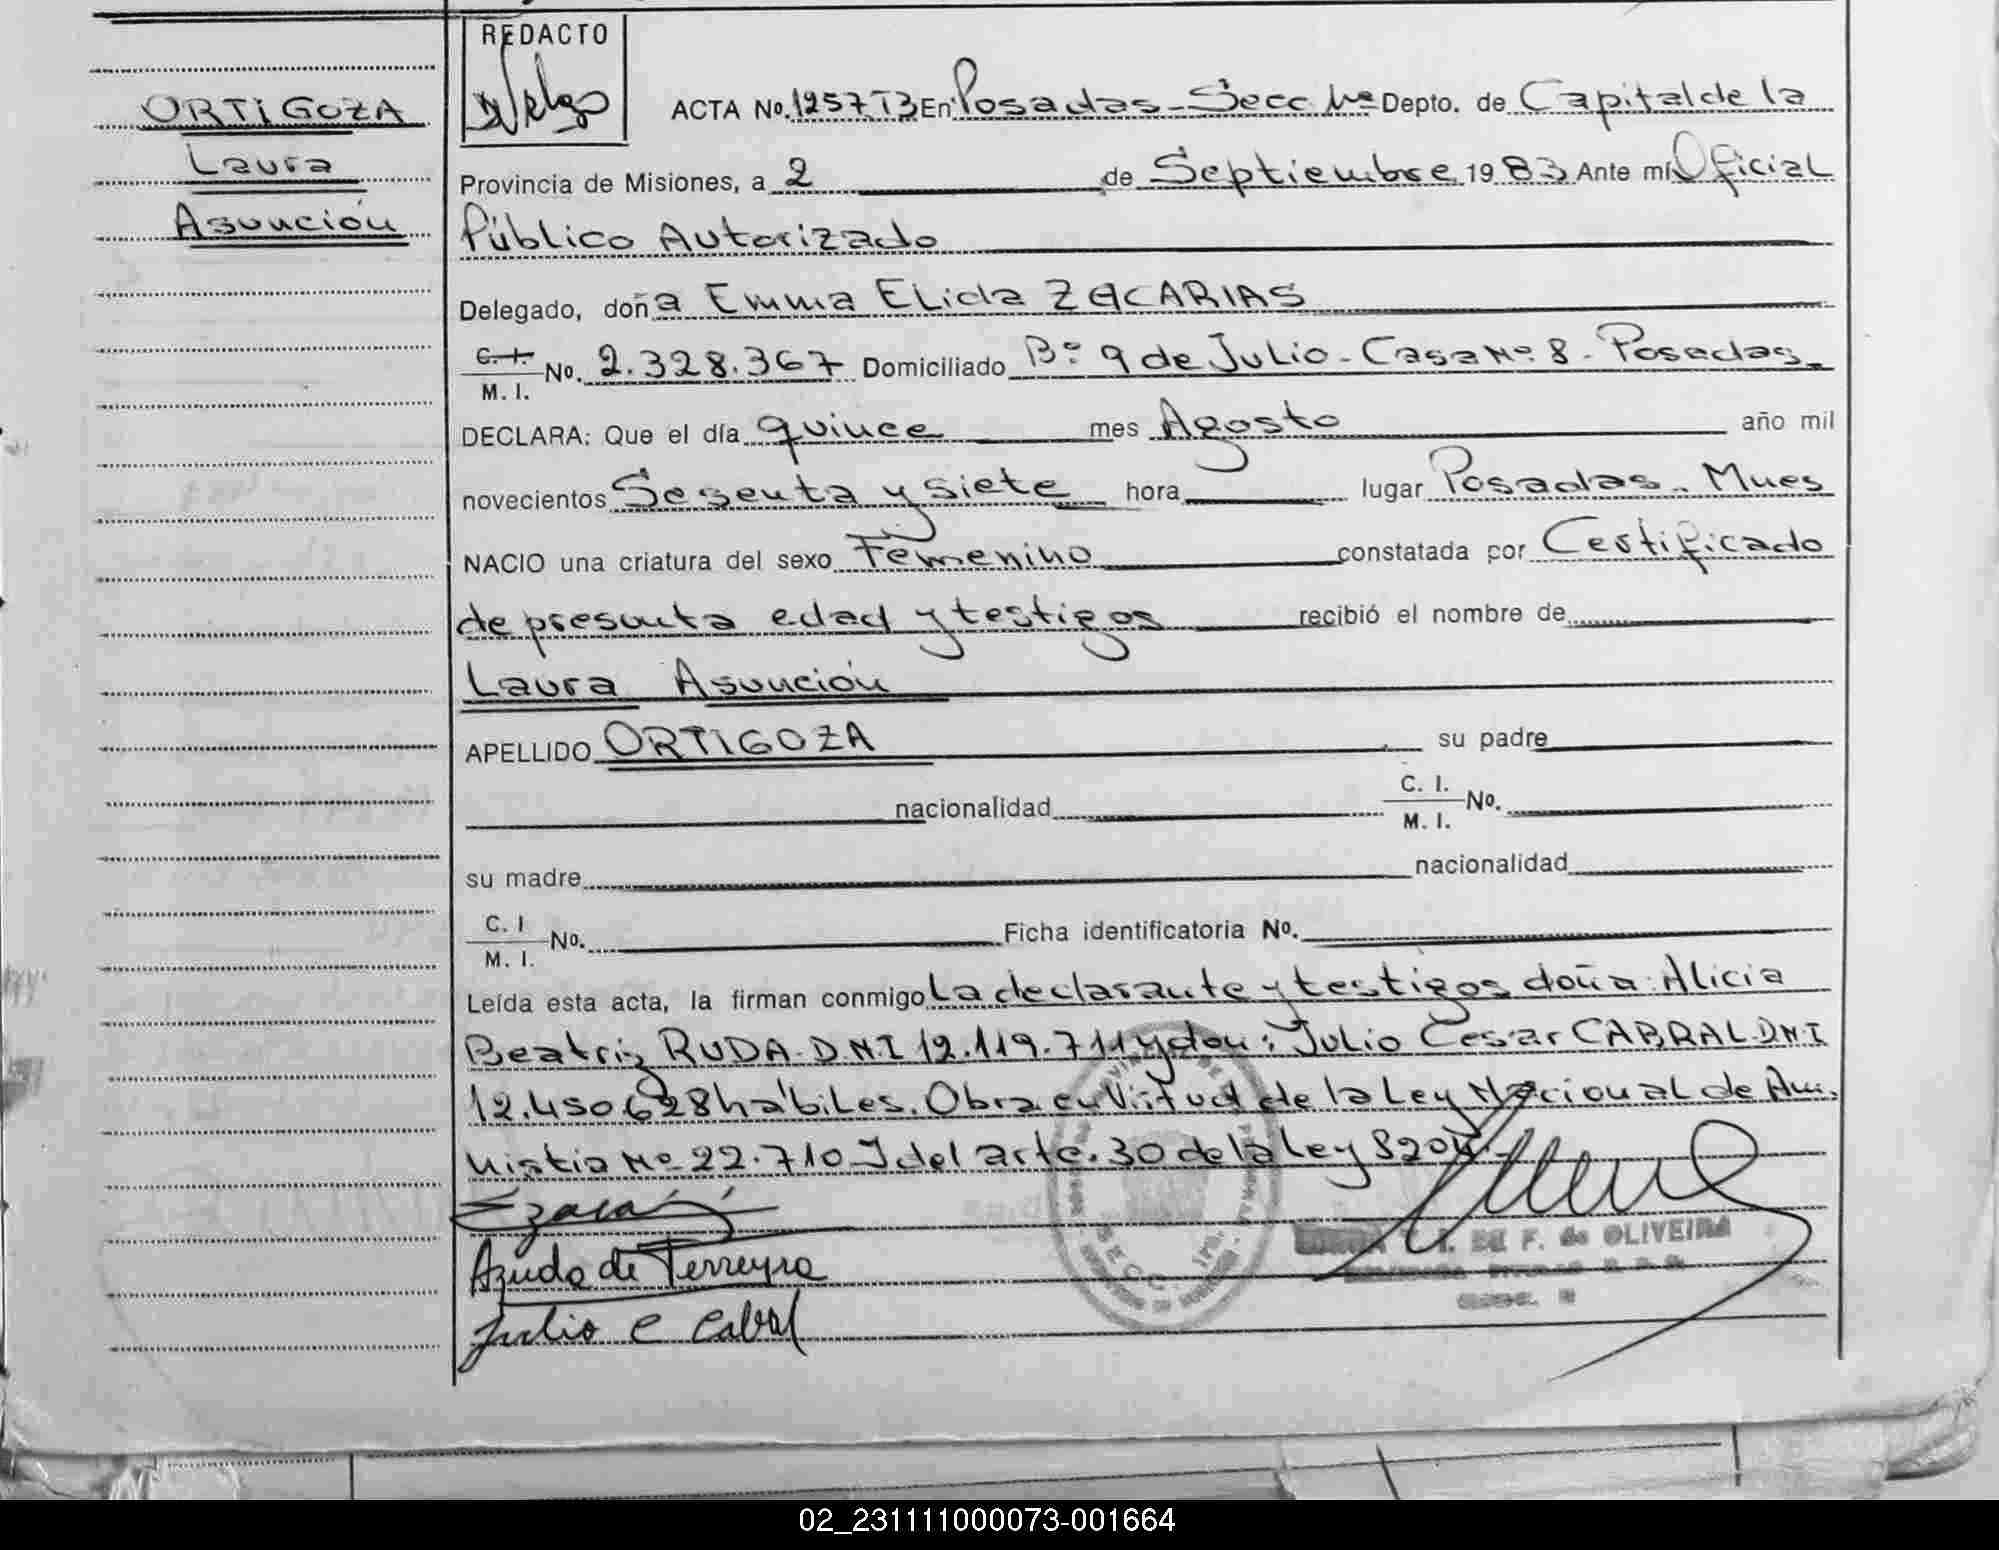 REDACTO
ORTIGOZA
Laura
Asunción
ACTA No. 1257 T3 En Posadas - Secc 1ra Depto. de Capital de la
Provincia de Misiones, a 2 de Septiembre 1983 Ante mí Oficial
Público Autorizado
Delegado, doña Emma Elida ZACARIAS
C. I. / M. I. No. 2.328.367 Domiciliado Bº 9 de Julio - Casa Nº 8 - Posadas
DECLARA: Que el día quince mes Agosto año mil
novecientos Sesenta y siete hora lugar Posadas - Mnes
NACIO una criatura del sexo Femenino constatada por Certificado
de presunta edad y testigos recibió el nombre de
Laura Asunción
APELLIDO ORTIGOZA su padre
nacionalidad C. I. / M. I. No.
su madre nacionalidad
C. I / M. I. No. Ficha identificatoria No.
Leída esta acta, la firman conmigo La declarante y testigos doña: Alicia
Beatriz RUDA - D.N.I 12.119.711 y don: Julio Cesar CABRAL - DNI
12.450.628 hábiles. Obra en Virtud de la Ley Nacional de Am-
nistia Nº 22.710 J del arte. 30 de la Ley 8204 -
Ezacarías
Aruda de Ferreyra
Julio C Cabral
F. de OLIVEIRA
02_231111000073-001664